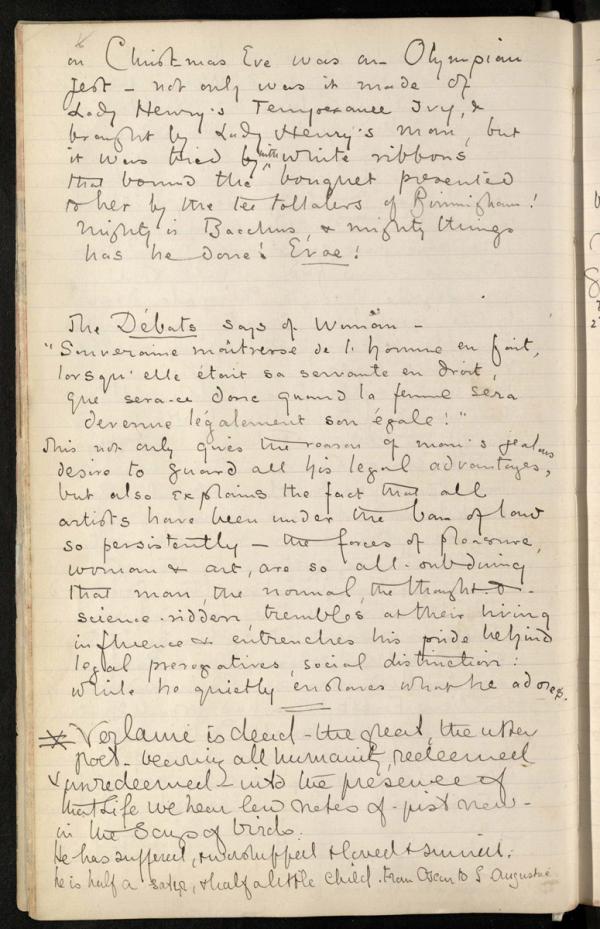 on Christmas Eve was an Olympian
jest – not only was it made of
Lady Henry's Temperance Ivy, &
brought by Lady Henry's man, but
it was tied by with white ribbons
that bound the bouquet presented
to her by the tee totallers of Birmingham!
Mighty is Bacchus, & mighty things
has he done! Evoe!
The Débats says of Woman –
"Souveraine maîtresse de l'homme en fait,
lorsqu'elle était sa servante en droit,
que sera-ce donc quand la femme sera
devenue légalement son égale!"
This not only gives the reason of man's jealous
desire to guard all his legal advantages,
but also explains the fact that all
artists have been under the ban of law
so persistently – the forces of pleasure,
woman & art, are so all-subduing
that man, the normal, the thought- & -
science-ridden, trembles at their living
influence & entrenches his pride behind
legal prerogatives, social distinction:
while he quietly enslaves what he adores.
Verlaine is dead – the great, the utter
poet – bearing all humanity, redeemed
& unredeemed – into the presence of
that Life we hear few notes of – just now –
in the Songs of birds.
He has suffered, & worshipped & loved & sinned.
he is half a satyr, & half a little child. from Oscar to S. Augustine